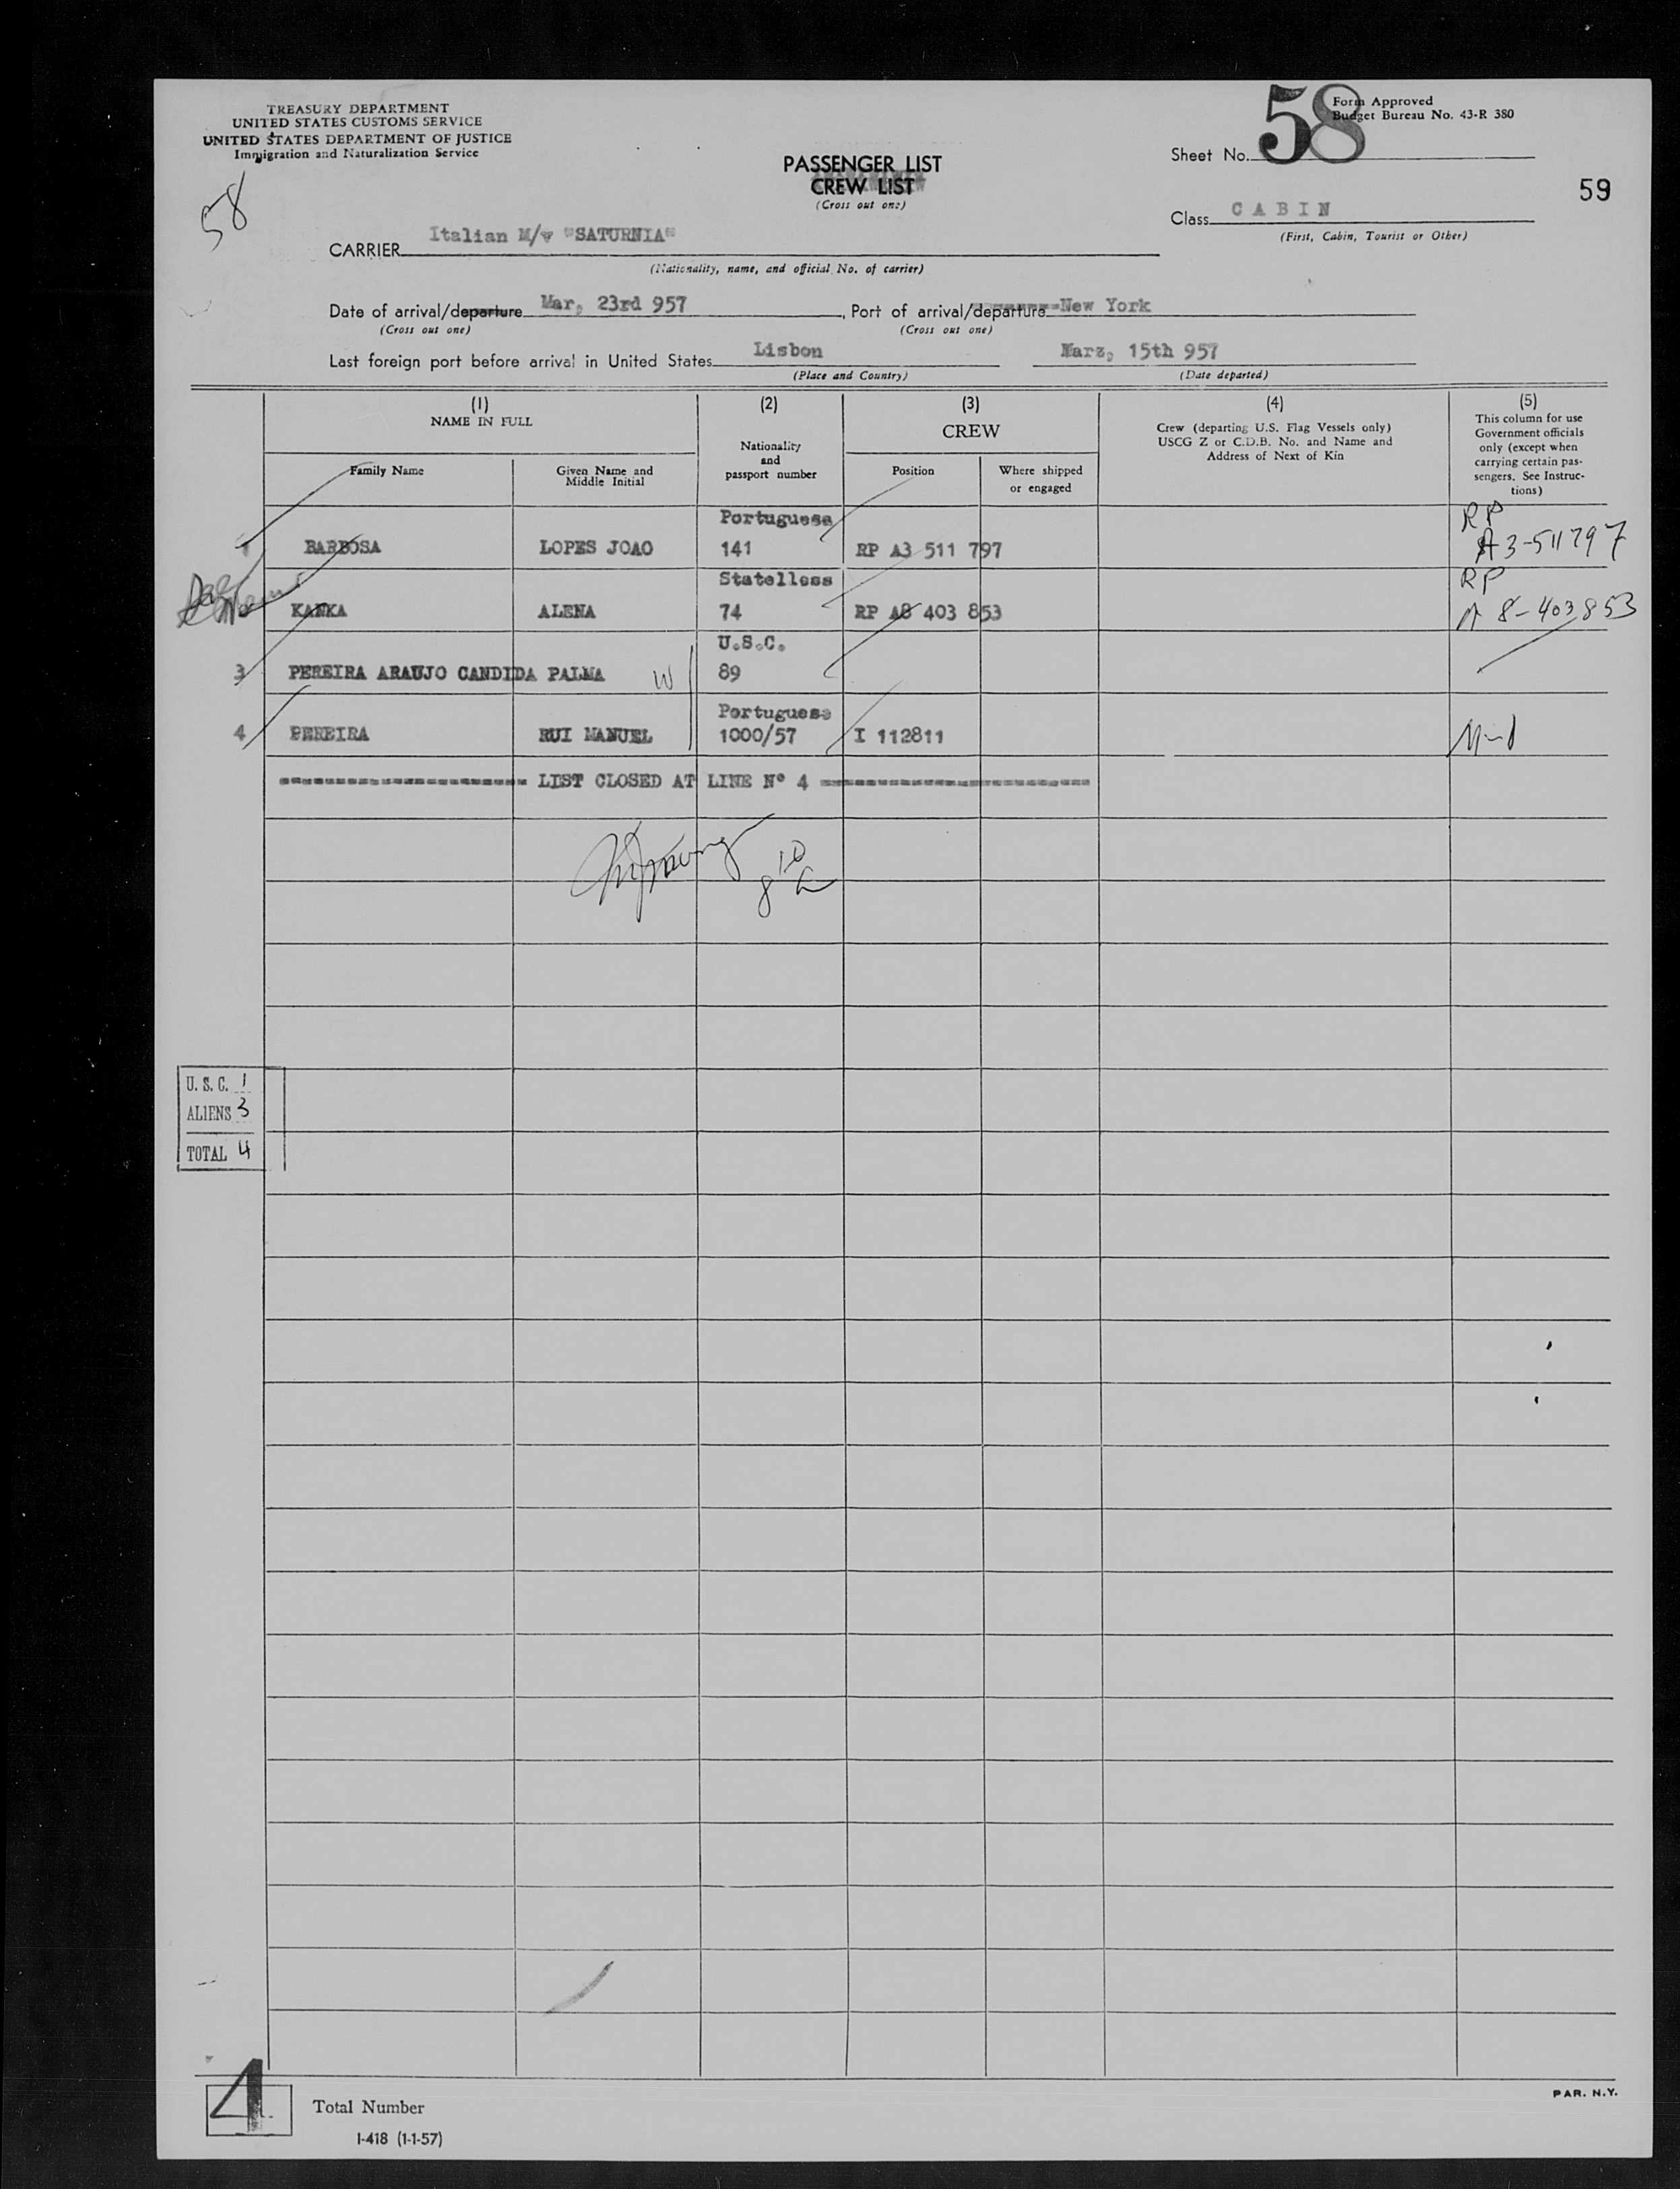 TREASURY DEPARTMENT
UNITED STATES CUSTOMS SERVICE
UNITED STATES DEPARTMENT OF JUSTICE
Immigration and Naturalization Service
58
PASSENGER LIST
CREW LIST
(Cross out one)
Form Approved
Budget Bureau No. 43-R 380
Sheet No. 58
59
Class CABIN
(First, Cabin, Tourist or Other)
CARRIER Italian M/v "SATURNIA"
(Nationality, name, and official No. of carrier)
Date of arrival/departure Mar, 23rd 957, Port of arrival/departure New York
(Cross out one) (Cross out one)
Last foreign port before arrival in United States Lisbon Marz, 15th 957
(Place and Country) (Date departed)
(1) (2) (3) (4) (5)
NAME IN FULL
Family Name
Given Name and
Middle Initial
Nationality
and
passport number
CREW
Position
Where shipped
or engaged
Crew (departing U.S. Flag Vessels only)
USCG Z or C.D.B. No. and Name and
Address of Next of Kin
This column for use
Government officials
only (except when
carrying certain pas-
sengers. See Instruc-
tions)
Portuguese RP
1 BARBOSA LOPES JOAO 141 RP A3 511 797 A3-511797
Statelless RP
KANKA ALENA 74 RP A8 403 853 A 8-403853
U.S.C.
3 PEREIRA ARAUJO CANDIDA PALMA W 89
Portuguese
4 PEREIRA RUI MANUEL 1000/57 I 112811
LIST CLOSED AT LINE Nº 4
U. S. C. 1
ALIENS 3
TOTAL 4
4 Total Number
I-418 (1-1-57)
PAR. N.Y.